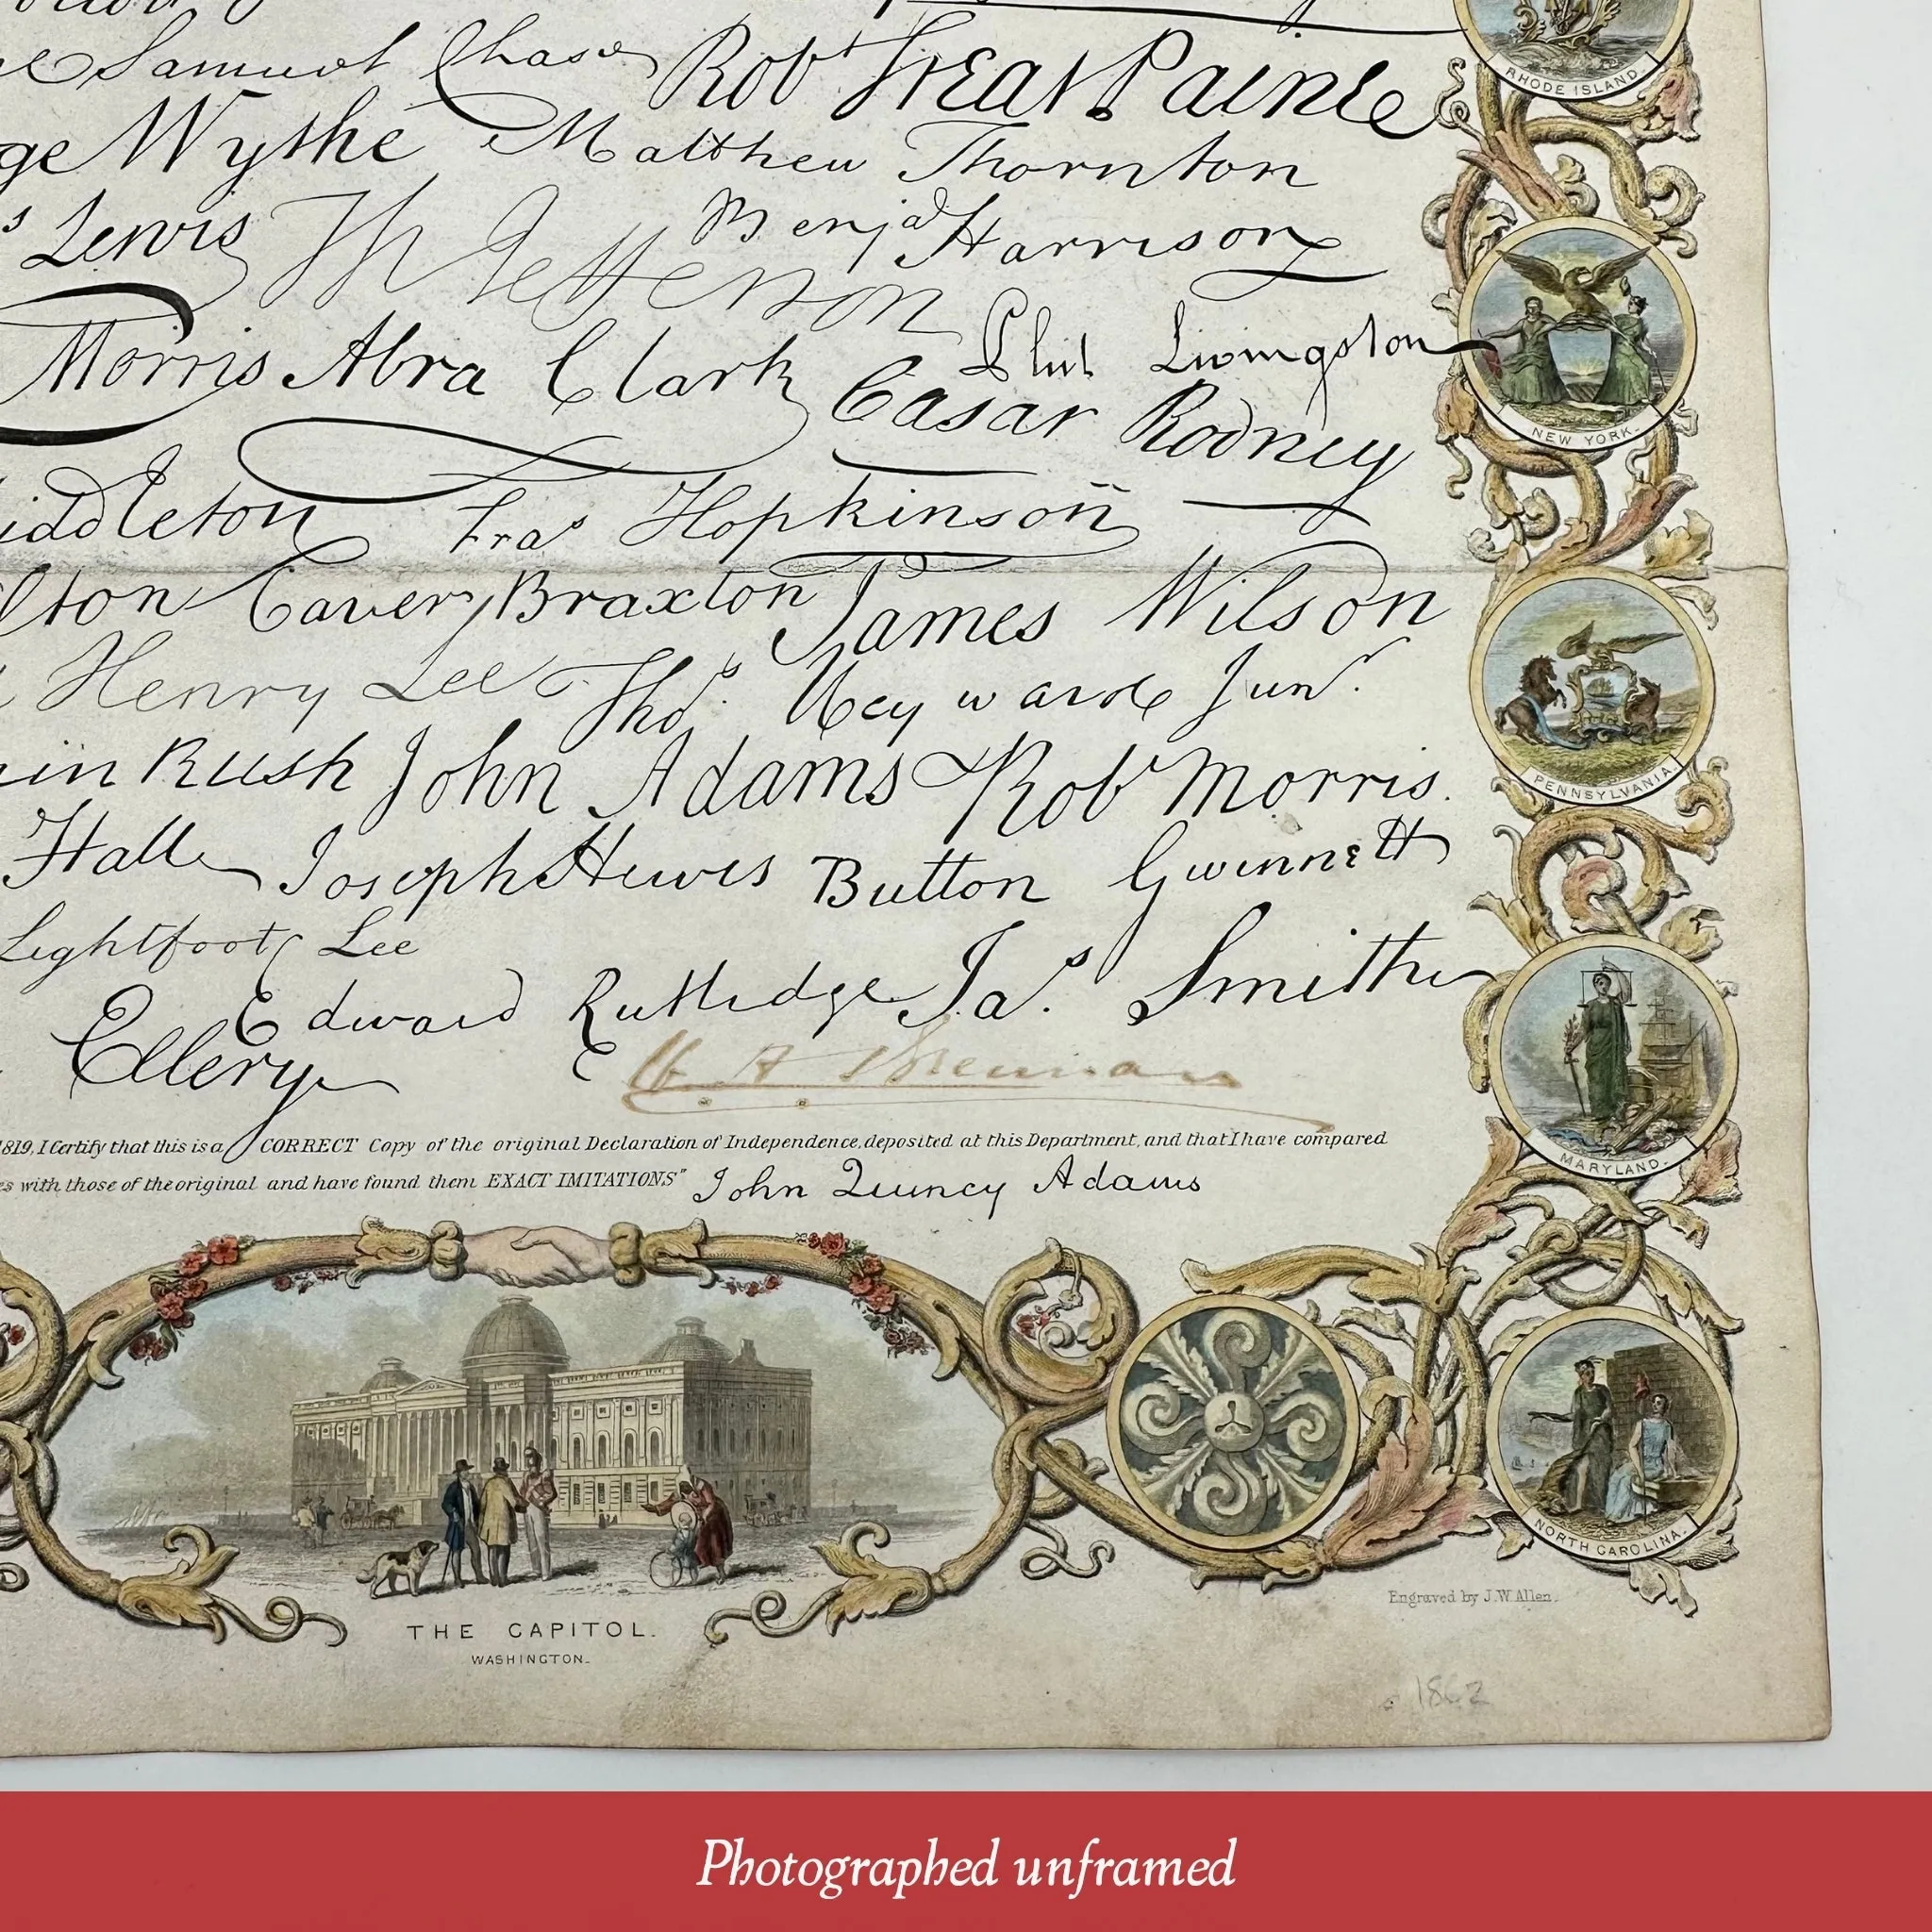 Samuel Chase Robt Treat Paine
RHODE ISLAND.
ge Wythe Matthew Thornton
s Lewis Th Jefferson Benja Harrison
Morris Abra Clark Phil Livingston
NEW YORK.
Casar Rodney
iddleton Fras Hopkinson
lton Carter Braxton James Wilson
Henry Lee Thos. Heyward Junr.
PENNSYLVANIA.
in Rush John Adams Robt Morris.
Hall Joseph Hewes Button Gwinnett
Lightfoot Lee
Edward Rutledge Jas. Smith
Ellery
MARYLAND.
1819, I Certify that this is a CORRECT Copy of the original Declaration of Independence, deposited at this Department, and that I have compared
es with those of the original and have found them EXACT IMITATIONS" John Quincy Adams
NORTH CAROLINA.
Engraved by J.W. Allen.
THE CAPITOL.
WASHINGTON.
1862
Photographed unframed